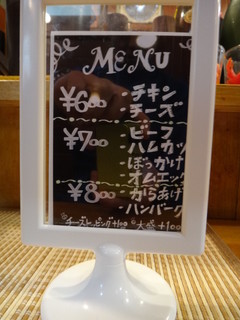 MENU
¥600 - チキン
- チーズ
¥700 - ビーフ
- ハムカツ
- ぼっかけ
- オムエッグ
¥800 - からあげ
- ハンバーグ
※チーズトッピング+100 大盛+100